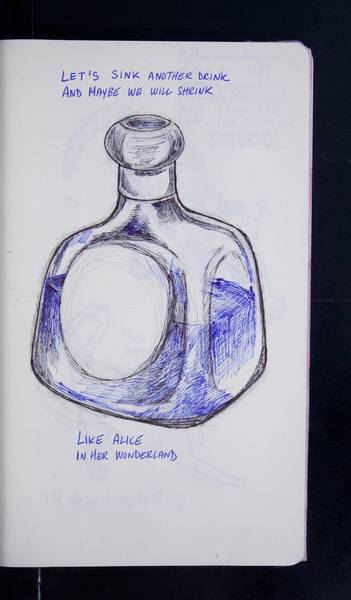 LET'S SINK ANOTHER DRINK
AND MAYBE WE WILL SHRINK
LIKE ALICE
IN HER WONDERLAND